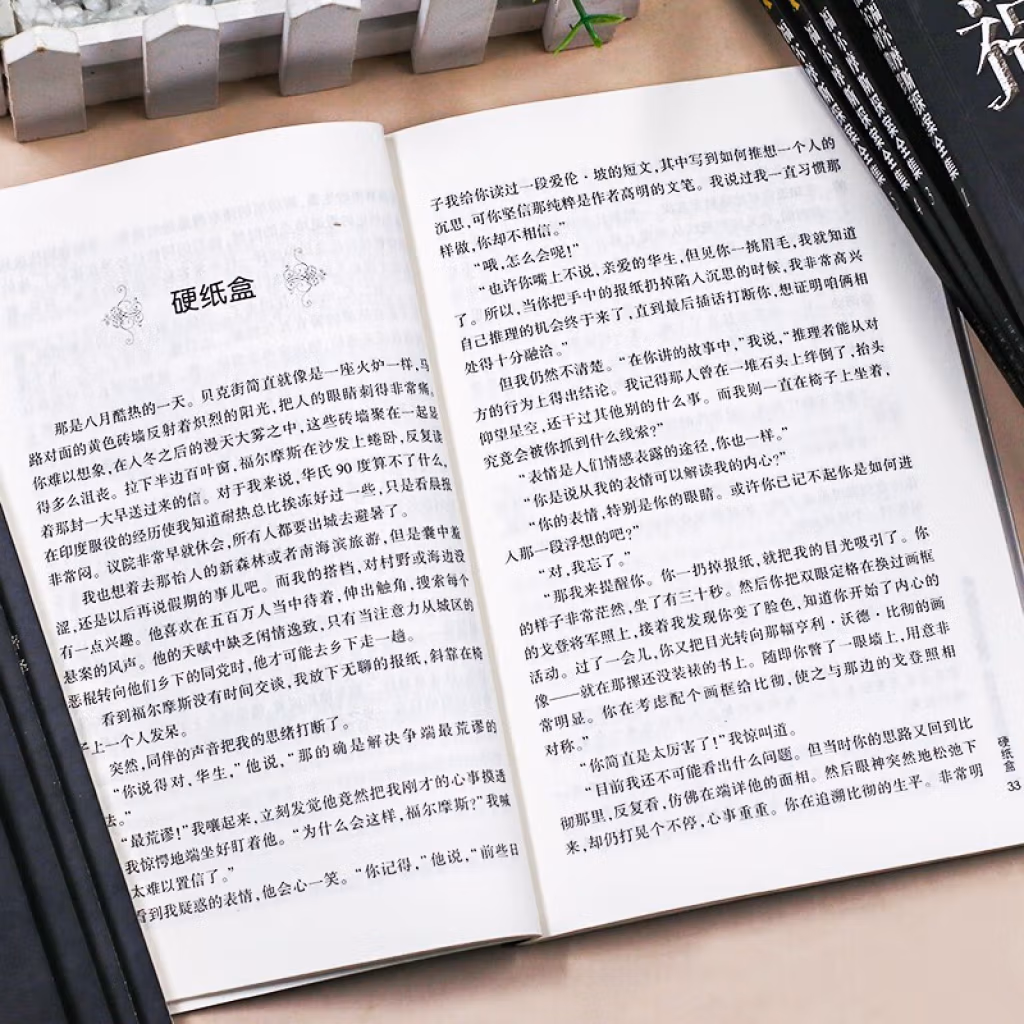 硬纸盒
那是八月酷热的一天。贝克街简直就像是一座火炉一样，马
路对面的黄色砖墙反射着炽烈的阳光，把人的眼睛刺得非常痛。
你难以想象，在入冬之后的漫天大雾之中，这些砖墙聚在一起显
得多么沮丧。拉下半边百叶窗，福尔摩斯在沙发上蜷卧，反复读
着那封一大早送过来的信。对于我来说，华氏90度算不了什么，
在印度服役的经历使我知道耐热总比挨冻好过一些，只是看晨报
非常闷。议院非常早就休会，所有人都要出城去避暑了。
我也想着去那怡人的新森林或者南海滨旅游，但是囊中羞
涩，还是以后再说假期的事儿吧。而我的搭档，对村野或海边没
有一点兴趣。他喜欢在五百万人当中待着，伸出触角，搜索每个
悬案的风声。他的天赋中缺乏闲情逸致，只有当注意力从城区的
恶棍转向他们乡下的同党时，他才可能去乡下走一趟。
看到福尔摩斯没有时间交谈，我放下无聊的报纸，斜靠在椅
子上一个人发呆。
突然，同伴的声音把我的思绪打断了。
“你说得对，华生，”他说，“那的确是解决争端最荒谬的
法。”
“最荒谬！”我嚷起来，立刻发觉他竟然把我刚才的心事摸透
我惊愕地端坐好盯着他。“为什么会这样，福尔摩斯？”我喊
太难以置信了。”
看到我疑惑的表情，他会心一笑。“你记得，”他说，“前些日
子我给你读过一段爱伦·坡的短文，其中写到如何推想一个人的
沉思，可你坚信那纯粹是作者高明的文笔。我说过我一直习惯那
样做，你却不相信。”
“哦，怎么会呢！”
“也许你嘴上不说，亲爱的华生，但见你一挑眉毛，我就知道
了。所以，当你把手中的报纸扔掉陷入沉思的时候，我非常高兴
自己推理的机会终于来了，直到最后插话打断你，想证明咱俩相
处得十分融洽。”
但我仍然不清楚。“在你讲的故事中，”我说，“推理者能从对
方的行为上得出结论。我记得那人曾在一堆石头上绊倒了，抬头
仰望星空，还干过其他别的什么事。而我则一直在椅子上坐着，
究竟会被你抓到什么线索？”
“表情是人们情感表露的途径，你也一样。”
“你是说从我的表情可以解读我的内心？”
“你的表情，特别是你的眼睛。或许你已记不起你是如何进
入那一段浮想的吧？”
“对，我忘了。”
“那我来提醒你。你一扔掉报纸，就把我的目光吸引了。你
的样子非常茫然，坐了有三十秒。然后你把双眼定格在换过画框
的戈登将军照上，接着我发现你变了脸色，知道你开始了内心的
活动。过了一会儿，你又把目光转向那幅亨利·沃德·比彻的画
像——就在那摞还没装裱的书上。随即你瞥了一眼墙上，用意非
常明显。你在考虑配个画框给比彻，使之与那边的戈登照相
对称。”
“你简直是太厉害了！”我惊叫道。
“目前我还不可能看出什么问题。但当时你的思路又回到比
彻那里，反复看，仿佛在端详他的面相。然后眼神突然地松池下
来，却仍打晃个不停，心事重重。你在追溯比彻的生平。非常明
硬纸盒
33